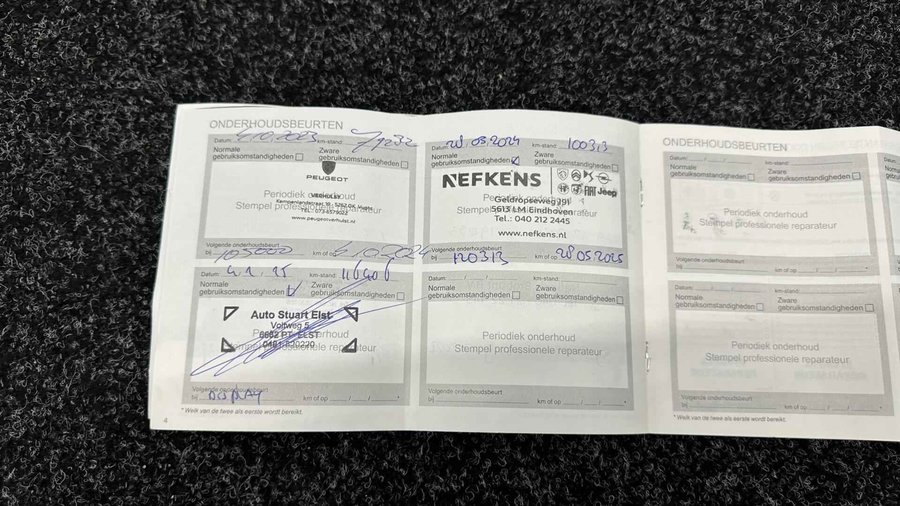 ONDERHOUDSBEURTEN
Datum: 4.10.2023 km-stand:
Normale gebruiksomstandigheden
Zware gebruiksomstandigheden
PEUGEOT
Periodiek onderhoud
Stempel professionele reparateur
www.peugeotverhulst.nl
Volgende onderhoudsbeurt
bij 105000 km of op 4.10.2024
Datum: 28.05.2024 km-stand: 100313
Normale gebruiksomstandigheden
Zware gebruiksomstandigheden
NEFKENS
FIAT Jeep
Periodiek onderhoud
Stempel professionele reparateur
Geldropseweg
5613 LM Eindhoven
Tel.: 040 212 2445
www.nefkens.nl
Volgende onderhoudsbeurt
bij 120313 km of op 28.05.2025
Datum: 4.2.25 km-stand:
Normale gebruiksomstandigheden
Zware gebruiksomstandigheden
Auto Stuart Elst
Voltweg 5
ELST
Periodiek onderhoud
Stempel professionele reparateur
Volgende onderhoudsbeurt
bij DISPLAY km of op
Datum: km-stand:
Normale gebruiksomstandigheden
Zware gebruiksomstandigheden
Periodiek onderhoud
Stempel professionele reparateur
Volgende onderhoudsbeurt
bij km of op
* Welk van de twee als eerste wordt bereikt.
4
ONDERHOUDSBEURTEN
Datum: km-stand:
Normale gebruiksomstandigheden
Zware gebruiksomstandigheden
Periodiek onderhoud
Stempel professionele reparateur
Volgende onderhoudsbeurt
bij km of op
Datum: km-stand:
Normale gebruiksomstandigheden
Zware gebruiksomstandigheden
Periodiek onderhoud
Stempel professionele reparateur
Volgende onderhoudsbeurt
bij km of op
* Welk van de twee als eerste wordt bereikt.